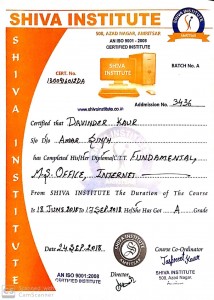 SHIVA INSTITUTE
508, AZAD NAGAR, AMRITSAR
AN ISO 9001:2008
CERTIFIED INSTITUTE
SHIVA INSTITUTE
BATCH No. A
CERT. No.
www.shivainstitute.co.in
Addmission No. 3436
Certified that DAVINDER KAUR
S/o, D/o AMAR SINGH
has Completed His/Her Diploma/C.T.T FUNDAMENTAL,
M.S. OFFICE, INTERNET
From SHIVA INSTITUTE The Duration of the Course
is 18 JUNE 2018 to 17 SEP. 2018 He/She Has Got A Grade
Date 24 SEP. 2018
Course Co-Ordinator
Director
AN ISO 9001:2008
CERTIFIED INSTITUTE
SHIVA INSTITUTE
CamScanner